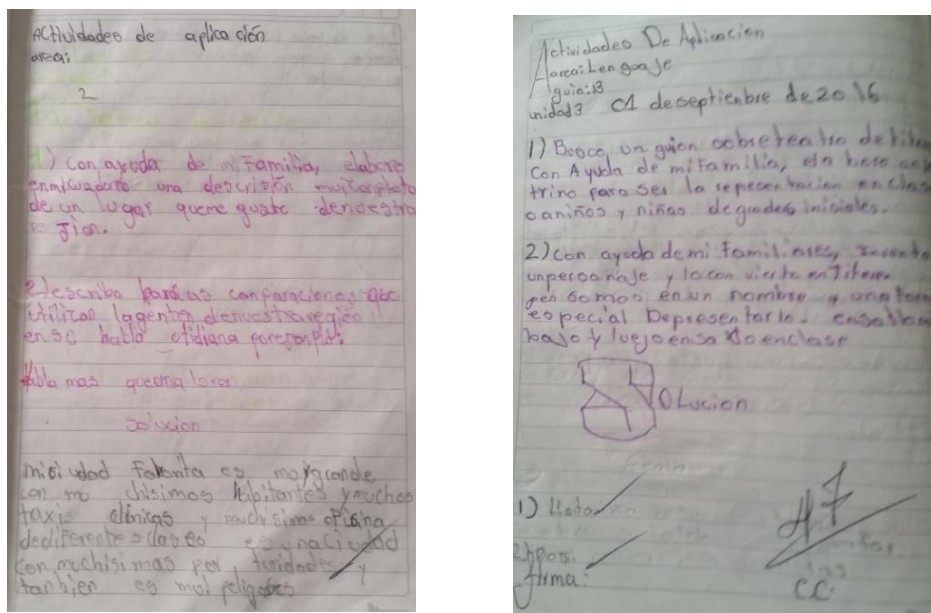 Actividades de aplicación
area:
2
1) con ayuda de mi familia, elaboro
enmicuaderno una descrisión muicompleta
de un lugar queme guste denuestra
re gion.
2) escribo barias comparaciones que
utilizan lagente denuestraregión
en so habla otidiana porejemplo:
abla mas queuna lora
solucion
misiudad faborita es muygrande
con mu chisimos habitantes ymuchos
taxis clinicas y muchisimas ofisina
dediferente s clases esunaciudad
con muchisimas por tunidades y
tanbien es mui peligrosos
Actividades De Aplicacion
area: Lenguaje
guia: 13
unidad3 01 deseptienbre de 2016
1) Busco, un guion sobreteatro detitere
Con Ayuda de mifamilia, ela boro un
trino para ser la representacion en clas
a aniños y niñas de grados inisiales.
2) con ayuda demi familiares, Invento
unpersonaje y locon vierto en titere
pen samos en un nombre y una form
especial Depresentarlo. ensallam
bajo y luejoensa doenclase
Solucion
1)
2)
firma: